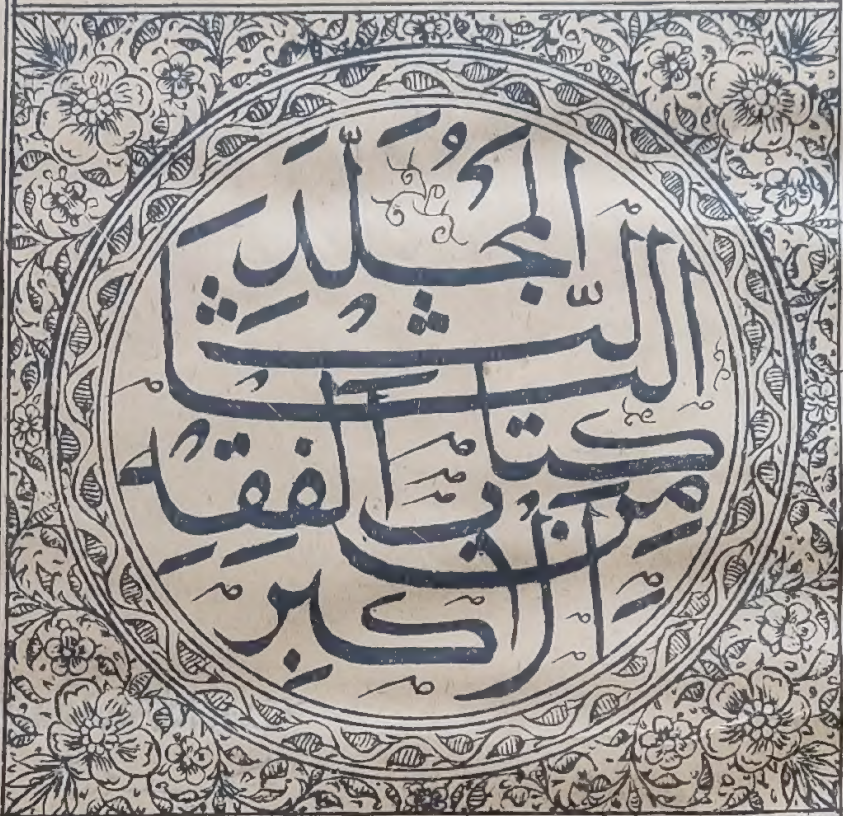 المجلد
الثالث
من كتاب الفقه
الاكبر